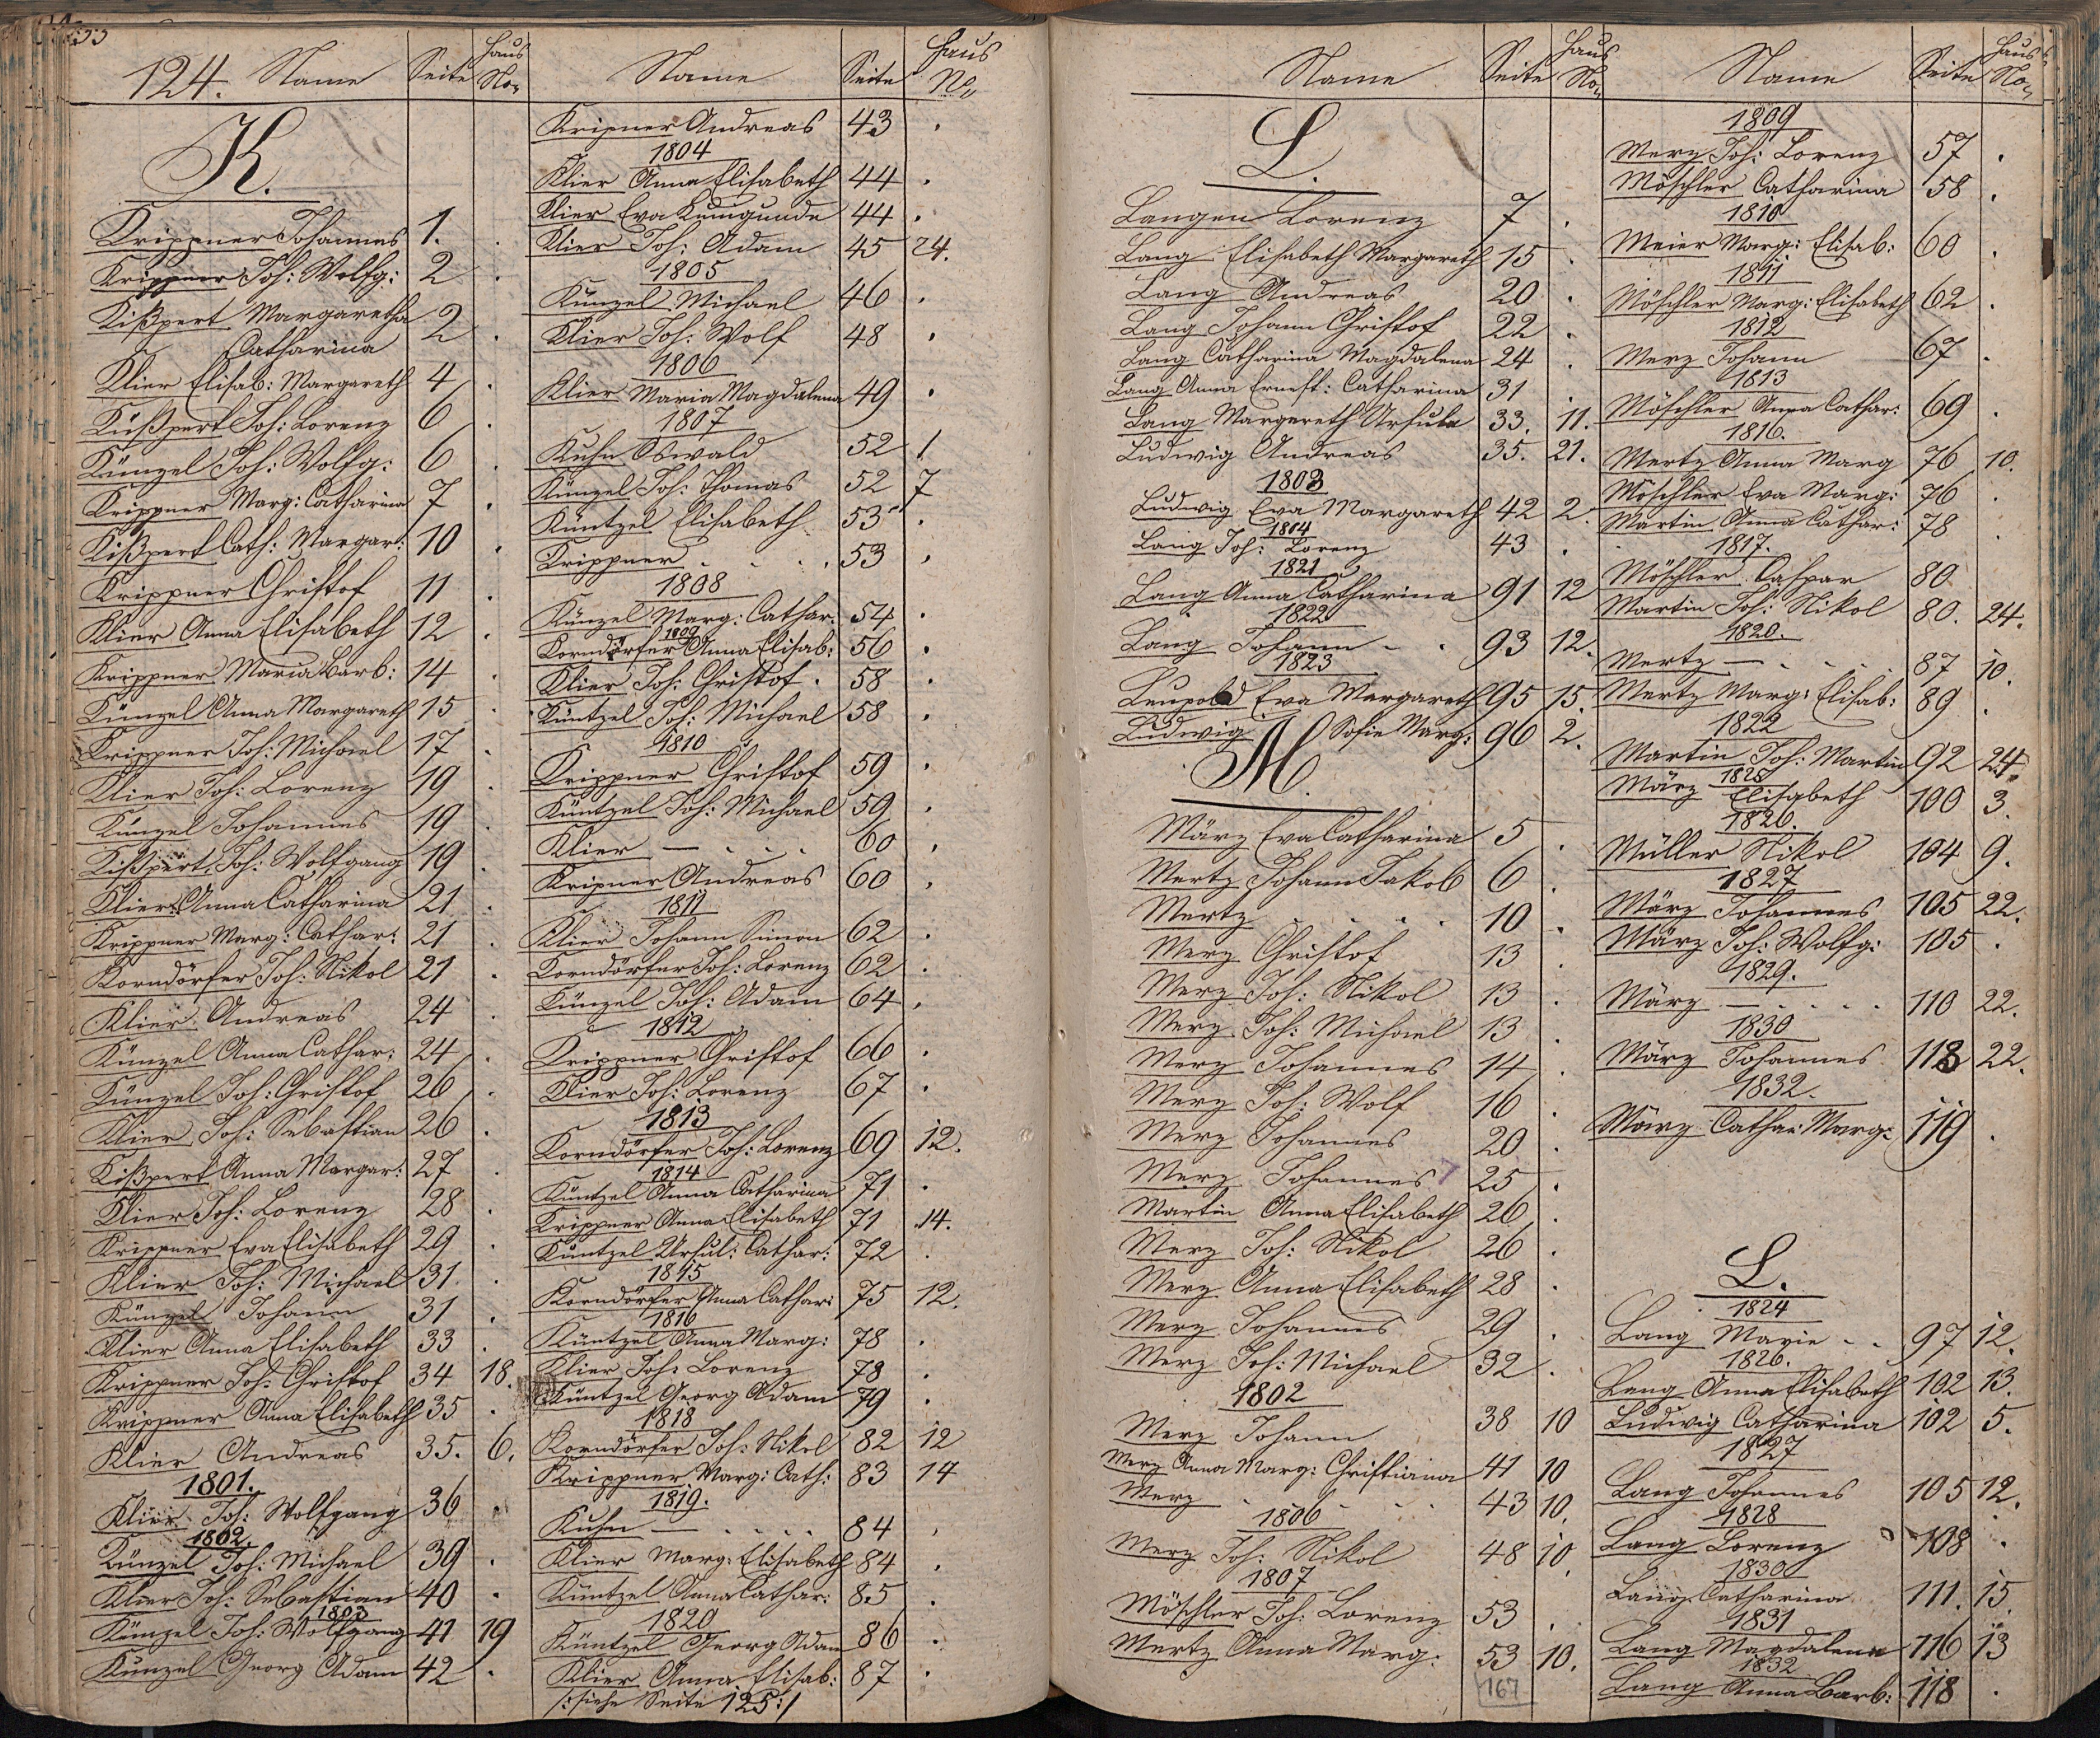 124. Name Seite Haus No.
K.
Krippner Johannes 1.
Krippner Joh: Wolfg: 2
Kißpert Margaretha 2
Catharina 2
Klier Elisab: Margareth 4
Küßpert Joh: Lorenz 6
Künzel Joh: Wolfg: 6
Krippner Marg: Catharina 7
Kißpert Cath: Margar: 10
Krippner Christof 11
Klier Anna Elisabeth 12
Krippner Maria Barb: 14
Künzel Anna Margareth 15
Krippner Joh: Michael 17
Klier Joh: Lorenz 19
Künzel Johannes 19
Kißpert Joh: Wolfgang 19
Klier Anna Catharina 21
Krippner Marg: Cathar: 21
Korndörfer Joh: Nikol 21
Klier Andreas 24
Künzel Anna Cathar: 24
Künzel Joh: Christof 26
Klier Joh: Sebastian 26
Kißpert Anna Margar: 27
Klier Joh: Lorenz 28
Krippner Eva Elisabeth 29
Klier Joh: Michael 31
Künzel Johann 31
Klier Anna Elisabeth 33
Krippner Joh: Christof 34 18.
Krippner Anna Elisabeth 35
Klier Andreas 35. 6.
1801.
Klier Joh: Wolfgang 36
1802.
Künzel Joh: Michael 39
Klier Joh: Sebastian 40
1803
Künzel Joh: Wolfgang 41 19
Künzel Georg Adam 42
Name Seite Haus No
Kripner Andreas 43
1804
Klier Anna Elisabeth 44
Klier Eva Kunigunde 44
Klier Joh: Adam 45 24.
1805
Künzel Michael 46
Klier Joh: Wolf 48
1806
Klier Maria Magdalena 49
1807
Kuhn Oswald 52 1
Künzel Joh: Thomas 52 7
Küntzel Elisabeth 53
Krippner . . . . 53
1808
Künzel Marg: Cathar: 54
1809
Korndörfer Anna Elisab: 56
Klier Joh: Christof 58
Küntzel Joh: Michael 58
1810
Krippner Christof 59
Küntzel Joh: Michael 59
Klier — . . . . 60
Kripner Andreas 60
1811
Klier Johann Simon 62
Korndörfer Joh: Lorenz 62
Künzel Joh: Adam 64
1812
Krippner Christof 66
Klier Joh: Lorenz 67
1813
Korndörfer Joh: Lorenz 69 12.
1814
Küntzel Anna Catharina 71
Krippner Anna Elisabeth 71 14.
Küntzel Ursul: Cathar: 72
1815
Korndörfer Anna Cathar: 75 12.
1816
Küntzel Anna Marg: 78
Klier Joh: Lorenz 78
Küntzel Georg Adam 79
1818
Korndörfer Joh: Nikol 82 12
Krippner Marg: Cath: 83 14
1819.
Kuhn — . . . . 84
Klier Marg: Elisabeth 84
Küntzel Anna Cathar: 85
1820
Küntzel Georg Adam 86
Klier Anna Elisab: 87
/: siehe Seite 125 :/
Name Seite Haus No.
L.
Langen Lorenz 7
Lang Elisabeth Margareth 15
Lang Andreas 20
Lang Johann Christof 22
Lang Catharina Magdalena 24
Lang Anna Ernest: Catharina 31
Lang Margereth Ursula 33. 11.
Ludwig Andreas 35. 21.
1803
Ludwig Eva Margareth 42 2.
1804
Lang Joh: Lorenz 43
1821
Lang Anna Catharina 91 12
1822
Lang Johann 93 12.
1823
Leupold Eva Margareth 95 15.
Ludwig Sofie Marg: 96 2.
M.
März Eva Catharina 5
Mertz Johann Jakob 6
Mertz . . . . 10
Merz Christof 13
Merz Joh: Nikol 13
Merz Joh: Michael 13
Merz Johannes 14
Merz Joh: Wolf 16
Merz Johannes 20
Merz Johannes 25
Martin Anna Elisabeth 26
Merz Joh: Nikol 26
Merz Anna Elisabeth 28
Merz Johannes 29
Merz Joh: Michael 32
1802
Merz Johann 38 10
Merz Anna Marg: Christiana 41 10
Merz . . . . 43 10.
1806
Merz Joh: Nikol 48 10.
1807
Möschler Joh: Lorenz 53
Mertz Anna Marg: 53 10.
167
Name Seite Haus No.
1809
Merz Joh: Lorenz 57
Möschler Catharina 58
1810
Meier Marg: Elisab: 60
1811
Möschler Marg: Elisabeth 62
1812
Merz Johann 67
1813
Möschler Anna Cathar: 69
1816.
Mertz Anna Marg 76 10.
Möschler Eva Marg: 76
Martin Anna Cathar: 78
1817.
Möschler Caspar 80
Martin Joh: Nikol 80. 24.
1820.
Mertz — . . . . 87 10.
Mertz Marg: Elisab: 89
1822
Martin Joh: Martin 92 24.
1825
März Elisabeth 100 3.
1826.
Müller Nikol 104 9.
1827
März Johannes 105 22.
März Joh: Wolfg: 105
1829.
März — . . . . 110 22.
1830
März Johannes 113 22.
1832.
März Cathar: Marg: 119
L.
1824
Lang Marie 97 12.
1826.
Lang Anna Elisabeth 102 13.
Ludwig Catharina 102 5.
1827
Lang Johannes 105 12.
1828
Lang Lorenz 108
1830
Lang Catharina 111. 15
1831
Lang Magdalena 116 13
1832
Lang Anna Barb: 118